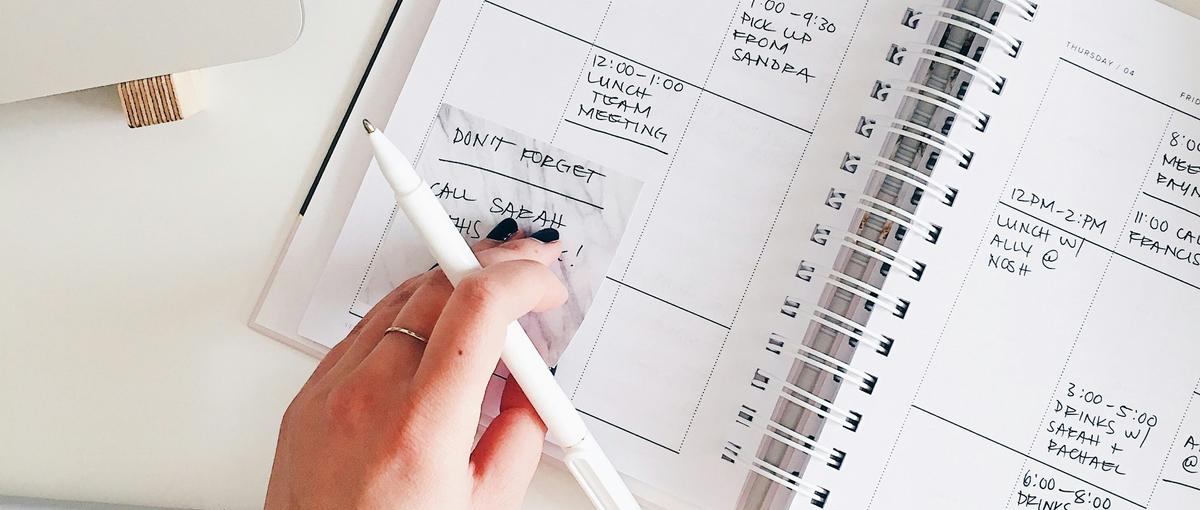 :00-9:30
PICK UP
FROM
SANDRA
12:00-1:00
LUNCH
TEAM
MEETING
DON'T FORGET
CALL SARAH
THIS
!
THURSDAY / 04
12PM-2:PM
LUNCH W/
ALLY @
NOSH
3:00-5:00
DRINKS W/
SARAH +
RACHAEL
6:00-8:00
DRINKS
FRI
8:00
MEE
11:00 CAL
FRANCIS
A
@